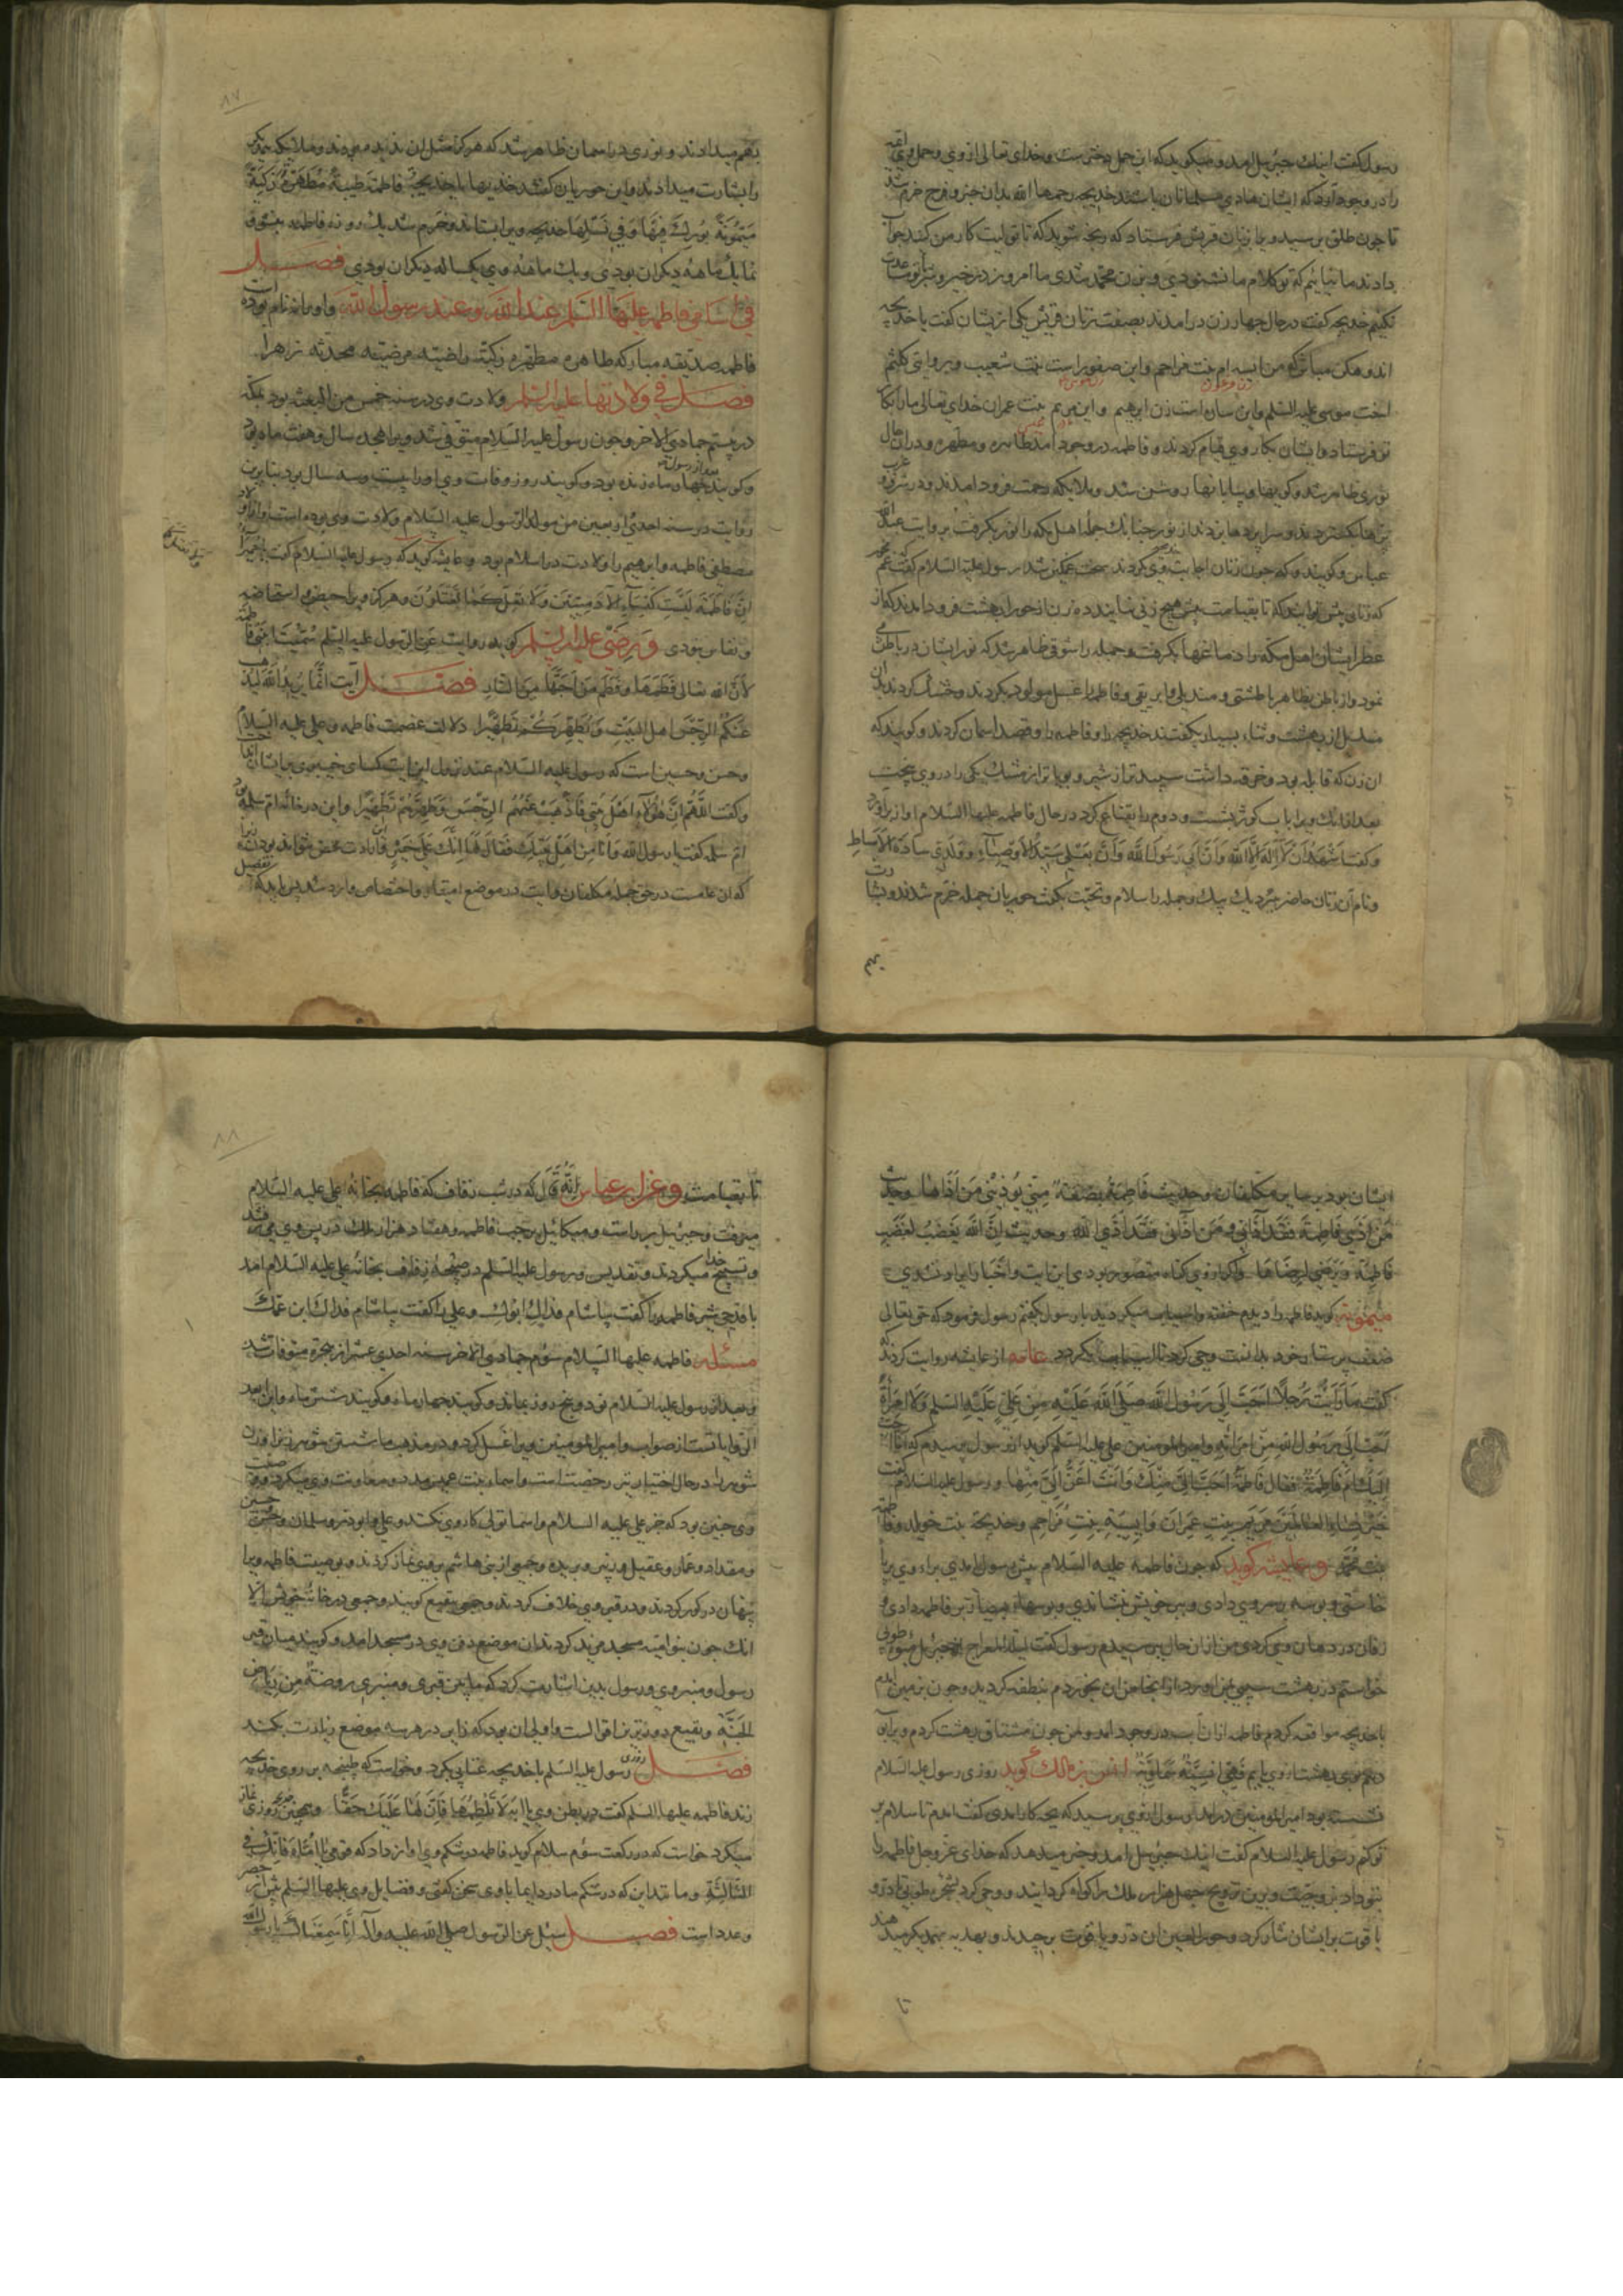 رسول گفت اینك جبرئیل امد و میکوید که این حمل دختر ست و خدای تعالی از وی و حمل وی ائمه
را در وجود اورد که ایشان هادی مسلمانان باشند خدیجه رحمها الله بدان خبر و فرح خرم شد
تا چون طلق برسید و با زنان قریش فرستاد که رنجه شوید که تا تولیت کار من کنید جواب
دادند ما نیائیم که تو کلام ما نشنودی و زن محمد شدی ما امروز در خیر و شر تو مساعدت
نکنیم خدیجه گفت در حال چهار زن در امدند بصفت زنان قریش یکی ازیشان گفت یا خدیجه
اندوهکن مباش که من اسیه ام بنت مزاحم و این صفورا ست بنت شعیب و بروایتی کلثم
زن فرعون
اخت موسی علیه السلم و این ساره است زن ابرهیم و این مریم بنت عمران خدای تعالی ما را بکار
تو فرستاد و ایشان بکار وی قیام کردند و فاطمه در وجود امد طاهره و مطهره و در ان حال
نوری ظاهر شد و کوهها و بیابانها روشن شد و ملایکه رحمت فرود امدند و در شرق و غرب
پرها بکستردند و سراپردها بزدند از نور چنانك جمله اهل مکه را نور بگرفت بروایت عبدالله
عباس و کویند که چون زنان اجابت وی نکردند سخت غمکین شد رسول علیه السلام گفت غم مخور
که زنانی پیش تو ایند که تا بقیامت پیش هیچ زنی نیایند ده زن از حوران بهشت فرود امدند که از
عطر ایشان اهل مکه را دماغها بگرفت و جمله را شوقی ظاهر شد که نور ایشان در باطن می
نمود و از باطن بظاهر با طشتی و مندیلی و ابریقی و فاطمه را غسل مولود بکردند و خشك کردند بدان
مندیل از بهشت و ثناء بسیار بگفتند خدیجه را و فاطمه را و قصد اسمان کردند و کویند که
ان زن که قابله بود و خرقه داشت سپیدتر از شیر و بویاتر از مشك یکی را در وی پیچید
بعد از انك ویرا باب کوثر بشست و دوم را بقناع کرد در حال فاطمه علیها السلام اواز براورد
و گفت اشهد ان لا اله الا الله وان ابی رسول الله وان بعلی سید الاوصیاء وولدی سادة الاسباط
و نام آن زنان حاضر ببرد یك بیك و جمله را سلام و تحیت بگفت حوریان جمله خرم شدند و بشارت
بهم
۸۷
بهم میدادند و نوری در اسمان ظاهر شد که هرکز مثل ان ندیده بودند و ملایکه یکدیگر
را بشارت میدادند و این حوریان گفتند خذیها یا خدیجة فاطمة طیبة مطهرة زکیة
میمونة بورك فیها وفی نسلها خدیجه ویرا بستاند و خرم شد یك روزه فاطمه بنشو و
نما یك ماهه دیکران بودی و یك ماهه وی یکساله دیکران بودی فصــــل
فی اسامی فاطمه علیها السلم عند الله وعند رسول الله و او را نه نام بوده
فاطمه صدیقه مبارکه طاهره مطهره زکیه راضیه مرضیه محدثه زهرا
فصــل فی ولادتها علیها السلم ولادت وی در سنه خمس من البعثه بود بمکه
در بیستم جمادی الاخر و چون رسول علیه السلام متوفی شد ویرا هجده سال و هفت ماه بود
بعد از رسول
و کویند چهار ماه زنده بود و کویند روز وفات وی او را بیست و سه سال بود بنابرین
روایت در سنه احدی اربعین من مولد الرسول علیه السلام ولادت وی بوده است و اولاد
مصطفی فاطمه و ابرهیم را ولادت در اسلام بود و عایشه کوید که رسول علیه السلام گفت یا حمیرا
ان فاطمة لیست کنساء الآدمیین ولا تعتل کما تعتلون و هرکز ویرا حیض و استحاضه
و نفاس نبودی وبرضی علیه السلم کوید روایت عن الرسول علیه السلم سمیت ابنتی فاطمة
لأن الله تعالی فطمها وفطم من احبها من النار فصــــل آیت انما یرید الله لیذهب
عنکم الرجس اهل البیت ویطهرکم تطهیرا دلالت عصمت فاطمه و علی علیه السلام
و حسن و حسین است که رسول علیه السلام عند نزول این ایت کسای خیبری بر ایشان انداخت
و گفت اللهم ان هؤلاء اهل بیتی فاذهب عنهم الرجس وطهرهم تطهیرا و این در خانه ام سلمه بود
ام سلمه گفت یا رسول الله وانا من اهل بیتك فقال لها انك علی خیر و ارادت محض نتواند بودن زیرا
که ان عامست در حق جمله مکلفان و ایت در موضع امتنان و اختصاص وارد شد پس اید که تفضیل
ایشان بود بر سایر مکلفان و حدیث فاطمة بضعة منی یؤذینی من اذاها و حدیث
من اذی فاطمة فقد آذانی ومن اذانی فقد اذی الله و حدیث ان الله یغضب لغضب
فاطمة ویرضی لرضاها و اکر از وی کناه متصور بودی این ایت و اخبار ایراد نشدی
میمونه کوید فاطمه را دیدم خفته و اسیا میکردید با رسول بگفتم رسول فرمود که حق تعالی
ضعف پرستار خود بدانست وحی کرد تا اسیا بکردد عامه از عایشه روایت کردند که
گفت ما رأیت رجلا احب الی رسول الله صلی الله علیه من علی علیه السلم ولا امرأة
احب الی رسول الله من امرأته و امیرالمومنین علی علیه السلم کوید از رسول پرسیدم که انا احب
الیك ام فاطمة فقال فاطمة احب الی منك وانت اعز الی منها و رسول علیه السلام گفت
خیر نساء العالمین مریم بنت عمران و اسیة بنت مزاحم وخدیجة بنت خویلد و فاطمة
بنت محمد و عایشه کوید که چون فاطمه علیه السلام پیش رسول امدی براء وی برپا
خاستی و بوسه بر سر وی دادی و بر جای خویش نشاندی و بوسها بسیار بر فاطمه دادی و
زفان در دهان وی کردی من ازان حال پرسیدم رسول گفت لیلة المعراج از جبرئیل میوه طوبی
خواستم در بهشت سیبی بمن اورد از انجا من ان بخوردم نطفه کردید و چون بزمین امدم
با خدیجه مواقعه کردم فاطمه ازان آب در وجود امد و من چون مشتاق بهشت کردم ویرا ببویم
دهم بوی بهشت از وی یابم فهی انسیة سماویة انس بن مالك کوید روزی رسول علیه السلام
نشسته بود امیرالمومنین در امد رسول از وی پرسید که بچه کار امدی گفت امدم تا سلام بر
تو کنم رسول علیه السلام گفت اینك جبرئیل امد و خبر میدهد که خدای عز و جل فاطمه را
بتو داد بزوجیت و برین تزویج چهل هزار ملك را کواه کردانید و وحی کرد بشجره طوبی تا در و
یاقوت بر ایشان نثار کرد و حور العین ان در و یاقوت برچیدند و بهدیه بهمدیکر میدهند
تا
۸۸
تا بقیامت و عن ابن عباس انه قال که در شب زفاف که فاطمه بخانه علی علیه السلام
میرفت و جبرئیل بر راست و میکائیل بر چپ فاطمه و هفتاد هزار ملك در پس وی می رفتند
و تسبیح خدا میکردند و تقدیس و رسول علیه السلم در صبحه زفاف بخانه علی علیه السلام امد
با قدحی شیر فاطمه را گفت بیاشام فداك ابوك و علی را گفت بیاشام فداك ابن عمك
مسئله فاطمه علیها السلام سوم جمادی الاخر سنه احدی عشر از هجرة متوفات شد
و بعد از رسول علیه السلام نود و پنج روز بماند و کویند چهار ماه و کویند شش ماه و این ابعد
الروایاتست از صواب و امیرالمومنین ویرا غسل کرد و در مذهب ما شستن شوهر زنرا و زن
شوهر را در حال اختیار نیز رخصت است و اسماء بنت عمیس مدد و معاونت وی میکرد و وصیت
وی چنین بود که جز علی علیه السلام و اسما تولی کار وی نکند و علی و ابوذر و سلمان و حسن و حسین
و مقداد و عمار و عقیل و زبیر و بریده و جمعی از بنی هاشم بر وی نماز کردند و بوصیت فاطمه ویرا
پنهان در کور کردند و در قبر وی خلاف کردند و جمعی بقیع کویند و جمعی در خانه خویش الا
انك چون بنو امیه مسجد مزید کردند ان موضع دفن وی در مسجد امد و کویند میان قبر
رسول و منبر وی و رسول بدین اشارت کرد که ما بین قبری ومنبری روضة من ریاض
الجنة و بقیع دورترین اقوالست و اولی ان بود که زایر در هر سه موضع زیارت بکند
فصــــل روزی رسول علیه السلم با خدیجه عتابی بکرد و خواست که طپنجه بر روی خدیجه
زند فاطمه علیها السلم گفت در بطن وی یا ابه لا تلطمها فان لها علیك حقا و همچنین روزی نماز
میکرد خواست که در رکعت سوم سلام کوید فاطمه در شکم وی اواز داد که قومی یا اماه فانك فی
الثالثة و مانند این که در شکم مادر دایما با وی سخن گفتی و فضایل وی علیها السلم بیش از حصر
و عدد است فصــــل سئل عن الرسول صلی الله علیه واله انا سمعناك یا رسول الله